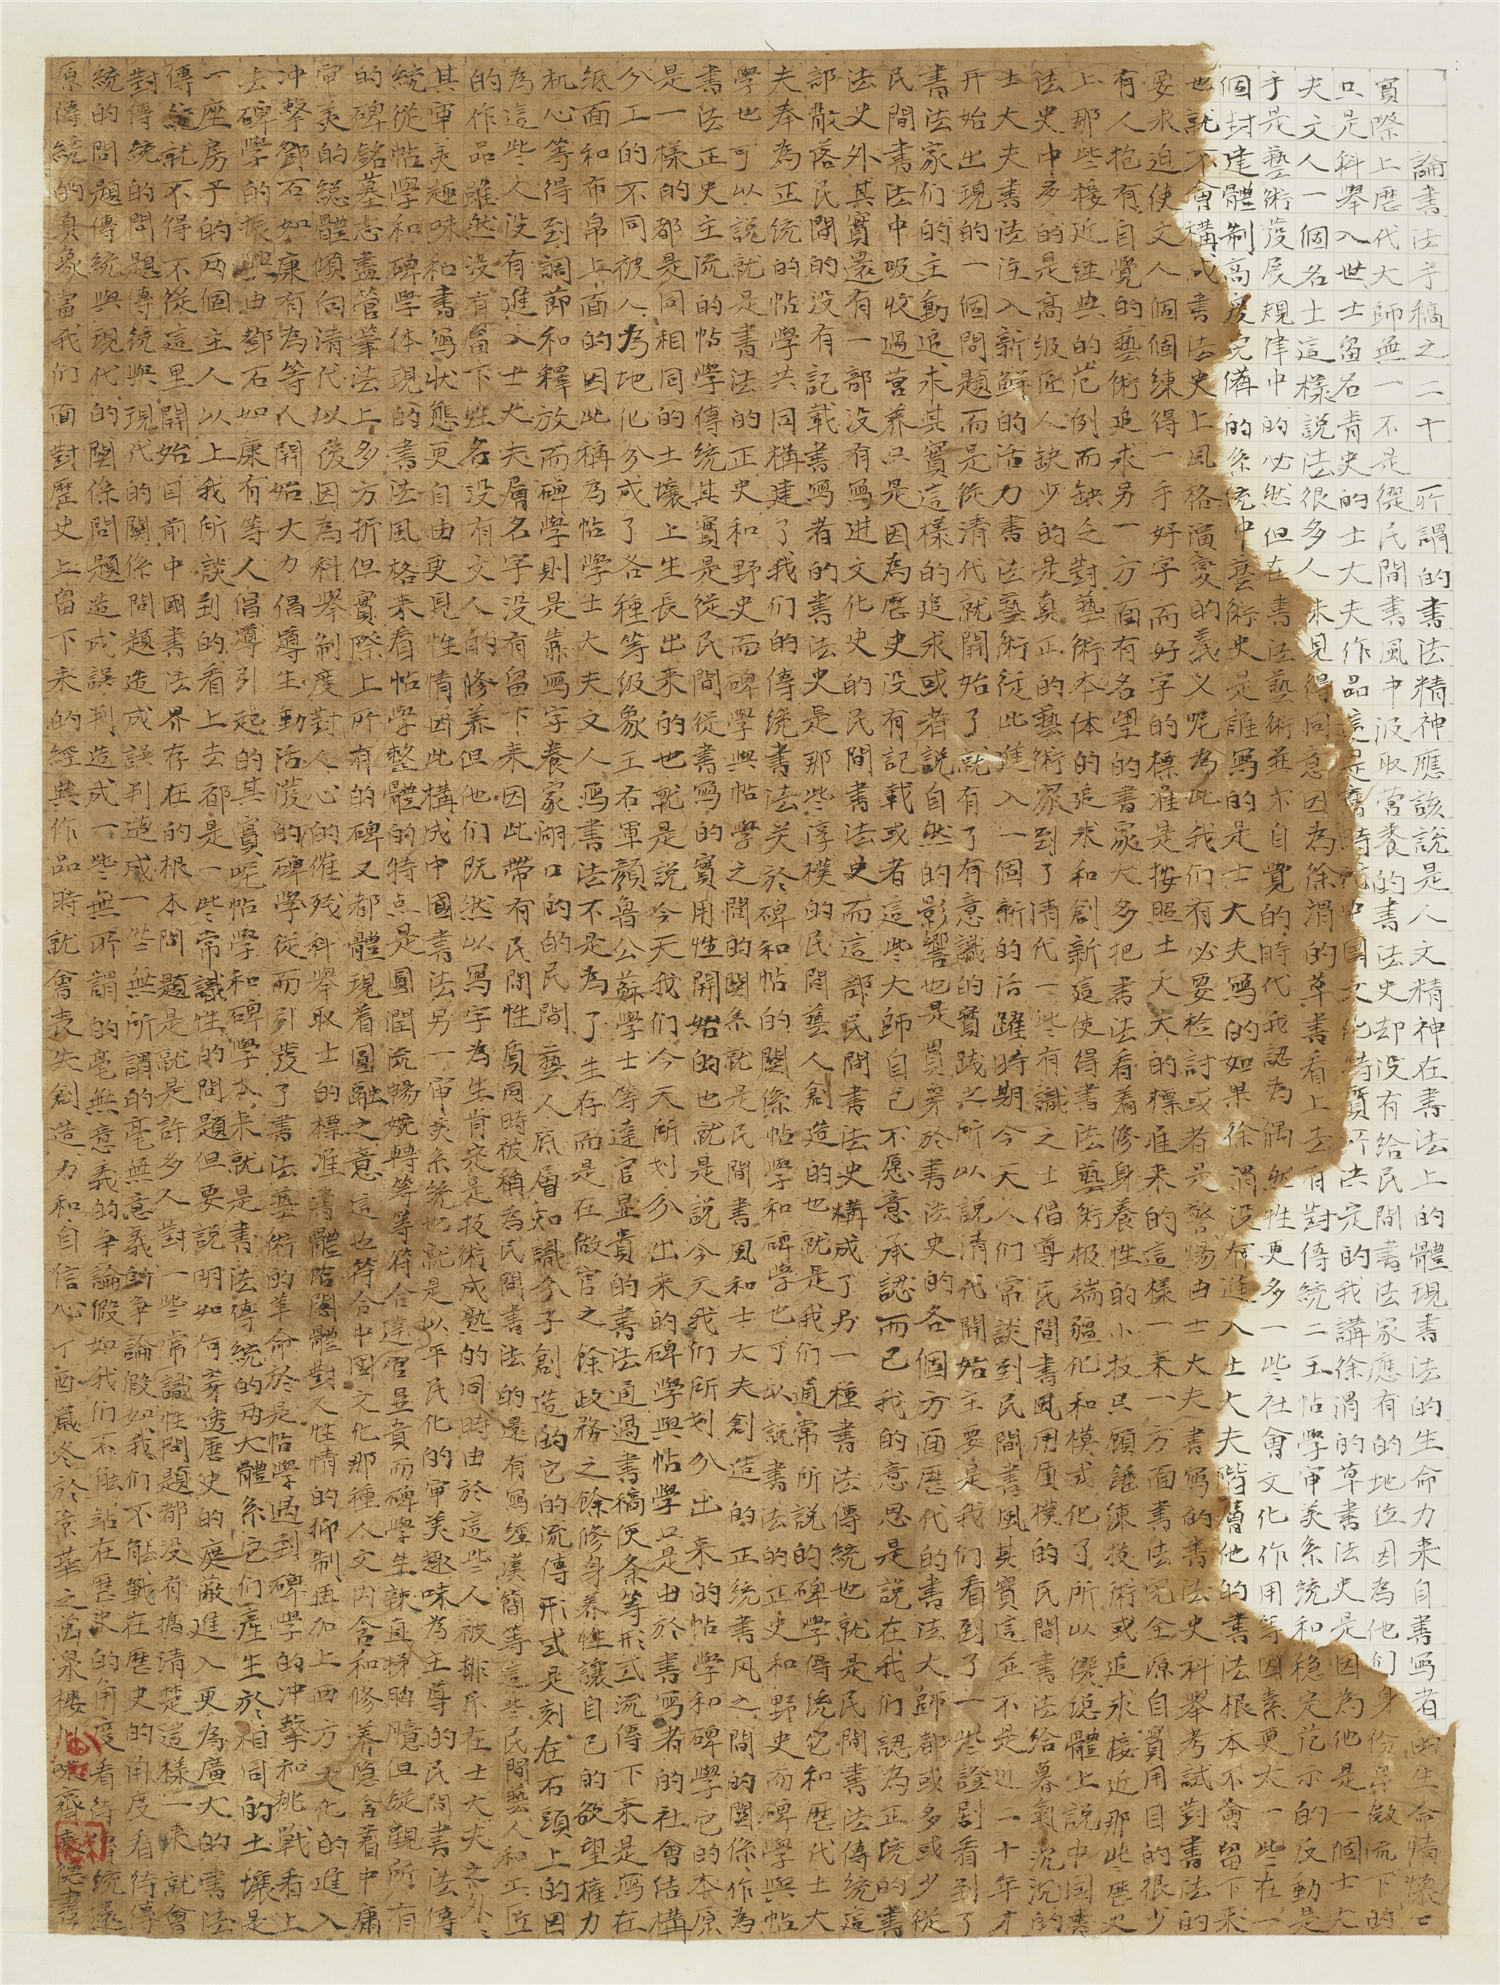 論書法手稿之二十 所謂的書法精神應該說是人文精神在書法上的體現書法的生命力來自書寫者的生命情懷
實際上歷代大師無一不是從民間書風中汲取营養的書法史却没有給民間書法家應有的地位因為他们身份卑微流下的
只是科舉入世士留名青史的士大夫作品這是當時的中國文化特質所决定的我講徐渭的草書法史是因為他是一個士大
夫文人一個名士這樣説法很多人未見得同意因為徐渭的草書看上去有對傳統二王帖學审美系統和穩定范示的反動是
手是藝術發展規律中的必然但在書法藝術並不自覺的時代我認為偶然性更多一些社會文化作用等因素更大一些在一
個封建體制高度完備的系统中藝術史是誰寫的是士大夫寫的如果徐渭没有進入士大夫階層他的書法根本不會留下來
也就不會構成書法史上風格演變的義义呢為此我们有必要检討或者是警惕由士大夫書寫的書法史科舉考試對書法的
要求迫使文人個個練得一手好字而好字的標准是按照士大夫的標准来的這樣一来一方面書法完全源自實用目的很少
有人抱有自覺的藝術追求另一方面有名望的書家大多把書法看着修身養性的小技只願錘湅技術或追求接近那些歷史
上那些接近經典的范例而缺乏對藝術本体的追求和創新這使得書法藝術极端疆化和模式化了所以從總體上説中国書
法史中多的是高级匠人缺少的是真正的藝術家到了清代一些有識之士倡導民間書風用質樸的民間書法给暮氣沉沉的
士大夫書法注入新鲜的活力書法藝術從此進入一個新的活躍時期今天人们常談到民間書風其實這並不是近二十年才
开始出現的一個問題而是從清代就開始了就有了有意識的實践之所以説清代開始主要是我们看到了一些證剧看到了
書法家们的主動追求其實這樣的追求或者説自然的影響也是貫穿於書法史的各個方面歷代的書法大師都或多或少從
民間書法中吸收過营养只是因為歷史没有記載或者這些大師自己不愿意承認而已我的意思是説在我们認為正统的書
法史外其實還有一部没有寫進文化史的民間書法史而這部民間書法史構成了另一種書法傳統也就是民間書法傳统這
部散落民間的没有記載書寫者的書法史是那些淳樸的民間藝人創造的也就是我们通常所説的碑學傳统它和歷代士大
夫奉為正统的帖學共同構建了我们的傳统書法关於碑和帖的關係帖學和碑學也可以説書法的正史和野史而碑學與帖
學也可以説就是書法的正史和野史而碑學與帖學之間的關系就是民間書風和士大夫創造的正统書风之間的關係作為
書法正史主流的帖學傳统其實是從民間從書寫的實用性開始的也就是説今天我们所划分出來的帖學和碑學它的本原
是一樣的都是同相同的土壤上生長出来的也就是說今天我们今天所划分出来的碑學與帖學只是由於書寫者的社會结構
分工的不同被人為地化分成了各种等级象王右軍顏魯公蘇學士等達官显貴的書法通過書稿便条等形式流傳下来是寫在
纸面和布帛上面的因此稱為帖學士大夫文人寫書法不是為了生存而是在做官之餘政務之餘修身养性讓自己的欲望權力
机心等得到調節和釋放而碑學則是靠寫字養家糊口的民間藝人底層知識分子創造的它的流傳形式是刻在石頭上的因
為這些人没有進入士大夫屠名字没有留下来因此帶有民間性質同時被稱為民間書法的還有寫經漢簡等這些民間藝人和工匠
的作品雖然没有留下姓名没有文人的修养但他们既然以寫字為生肯定是技術成熟的同時由於這些人被排斥在士大夫之外
其审美趣味和書寫狀態更自由更見性情因此構成中國書法另一审美系统也就是以平民化的审美趣味為主導的民間書法傳
統從帖學和碑學体現的書法風格来看帖學整體的特点是圓潤流暢婉轉等等符合達官显貴而碑學生鞅直抹胸臆但縱觀所有
的碑銘墓志盡管筆法上多方折但實際上所有的碑又都體現着圓融之意這也符合中國文化那種人文内含和修养隐含着中庸
审美的總體傾向清代以後因為科舉制度對人心的催残科舉取士的標准書體馆閣體對人性情的抑制再加上西方文化的進入
冲擊鄧石如康有為等人開始大力倡導生動活潑的碑學從而引發了書法藝術的革命於是帖學遇到碑學的冲擊和挑戰看上
去碑學的振興由鄧石如康有等人倡導引起的其實呢帖學和碑學本来就是書法傳统的两大體系它们產生於相同的土壤是
一座房子的两個主人以上我所談到的看上去都是一些常識性的問題但要説明如何穿透歷史的庶蔽進入更為廣大的書法
傳統就不得不從這里開始目前中國書法界存在的根本問題是就是許多人對一些常識性問題都没有搞清楚這樣一来就會
對傳統的問題傳統與現代的關係問題造成誤判造成一些無所謂的毫無意義的争論假如我们不能戰在歷史的角度看待傳
統的問題傳統與現代的關係問題造成誤判造成一些無所謂的毫無意義的争論假如我们不能站在歷史的角度看待傳統還
原傳統的真象當我们面對歷史上留下来的經典作品時就會丧失創造力和自信心丁酉歲冬於京華之萬泉樓 書